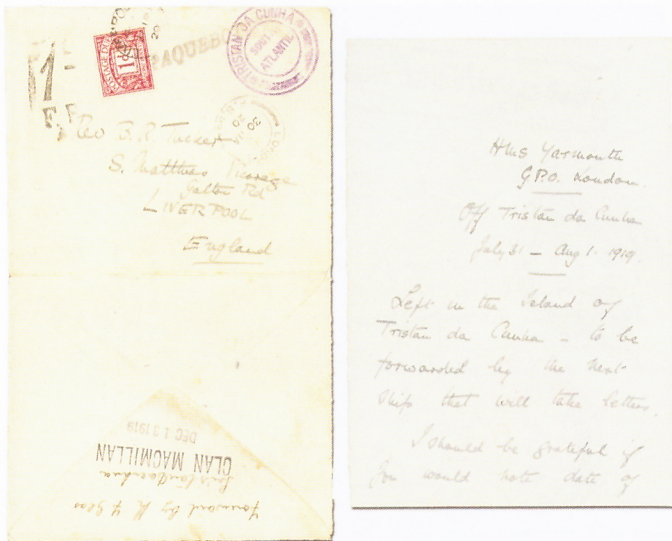 1
F.
PAQUEBO
TRISTAN DA CUNHA
ATLANTIC
Rev B. R. Tucker
S. Matthias Vicarage
Rd
LIVERPOOL
England
DEC 13 1919
CLAN MACMILLAN
forward by
HMS Yarmouth
G.P.O. London.
Off Tristan da Cunha
July 31 - Aug 1. 1919.
Left in the Island of
Tristan da Cunha - to be
forwarded by the next
ship that will take letters.
I should be grateful if
you would note date of